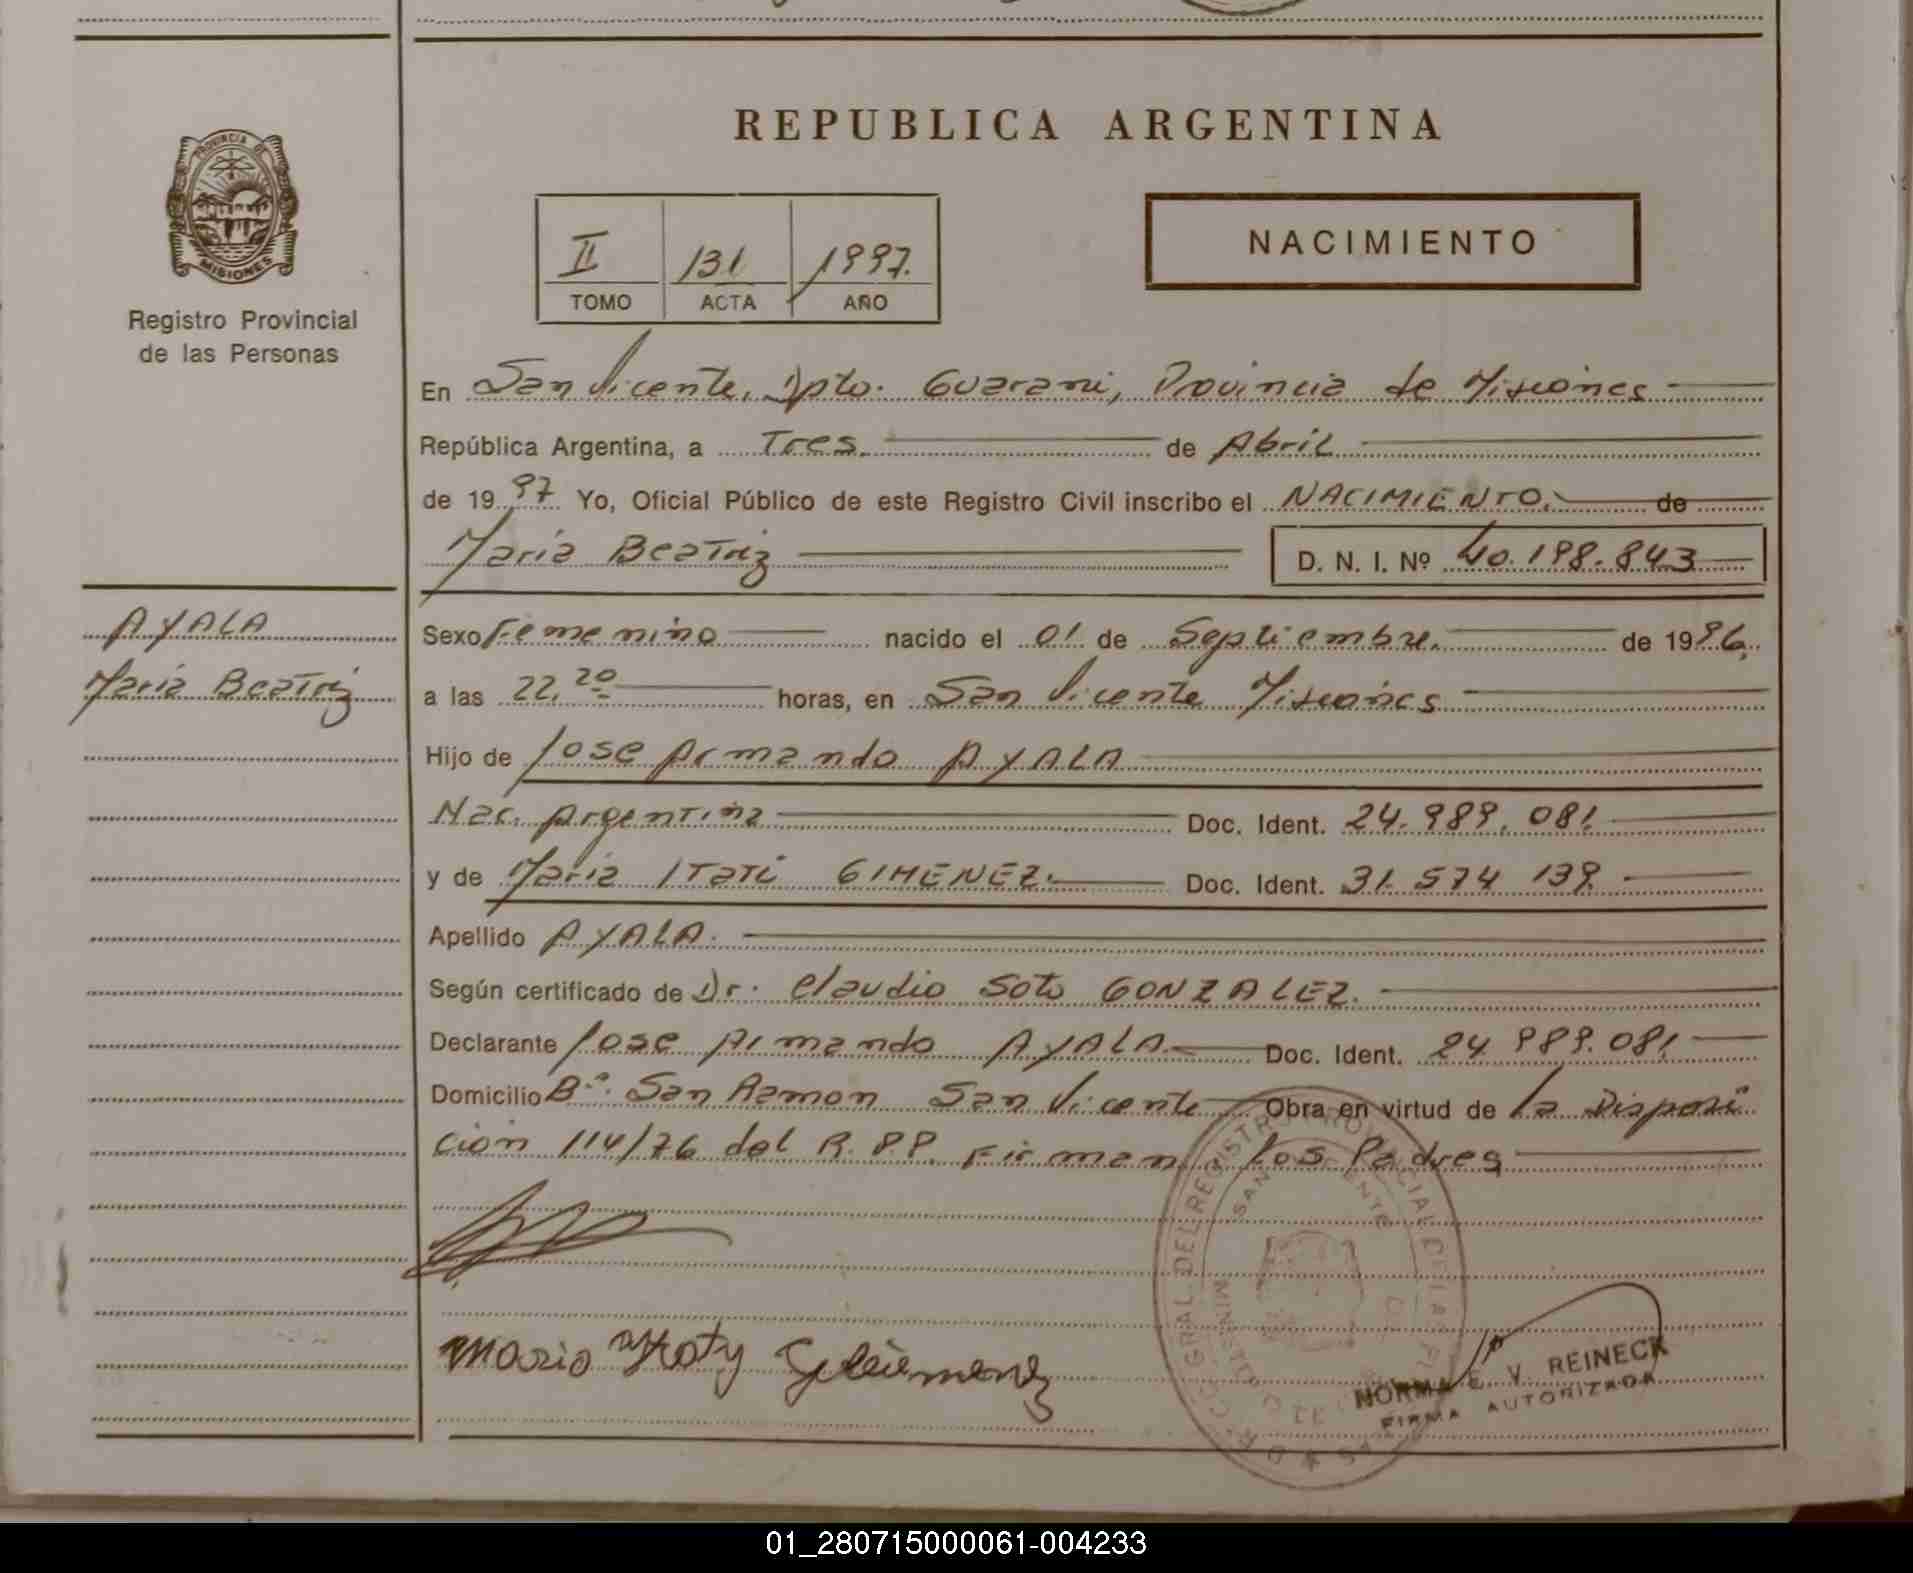 REPUBLICA ARGENTINA
PROVINCIA DE
MISIONES
Registro Provincial
de las Personas
II 131 1997.
TOMO ACTA AÑO
NACIMIENTO
En San Vicente, Dpto. Guarani, Provincia de Misiones
República Argentina, a Tres de Abril
de 1997 Yo, Oficial Público de este Registro Civil inscribo el NACIMIENTO. de
Maria Beatriz D. N. I. Nº 40.198.843
AYALA
Maria Beatriz
Sexo Femenino nacido el 01 de Septiembre. de 1996.
a las 22,20 horas, en San Vicente Misiones
Hijo de Jose Armando AYALA
Nac. Argentina Doc. Ident. 24.989.081.
y de Maria Itati GIMENEZ. Doc. Ident. 31.574 139.
Apellido AYALA.
Según certificado de Dr. Claudio Soto GONZALEZ.
Declarante Jose Armando AYALA. Doc. Ident. 24 989.081.
Domicilio Bº. San Ramon San Vicente Obra en virtud de la Disposi
cion 114/76 del R.P.P. Firman los Padres
SAN VICENTE
NORMA E. V. REINECK
FIRMA AUTORIZADA
01_280715000061-004233